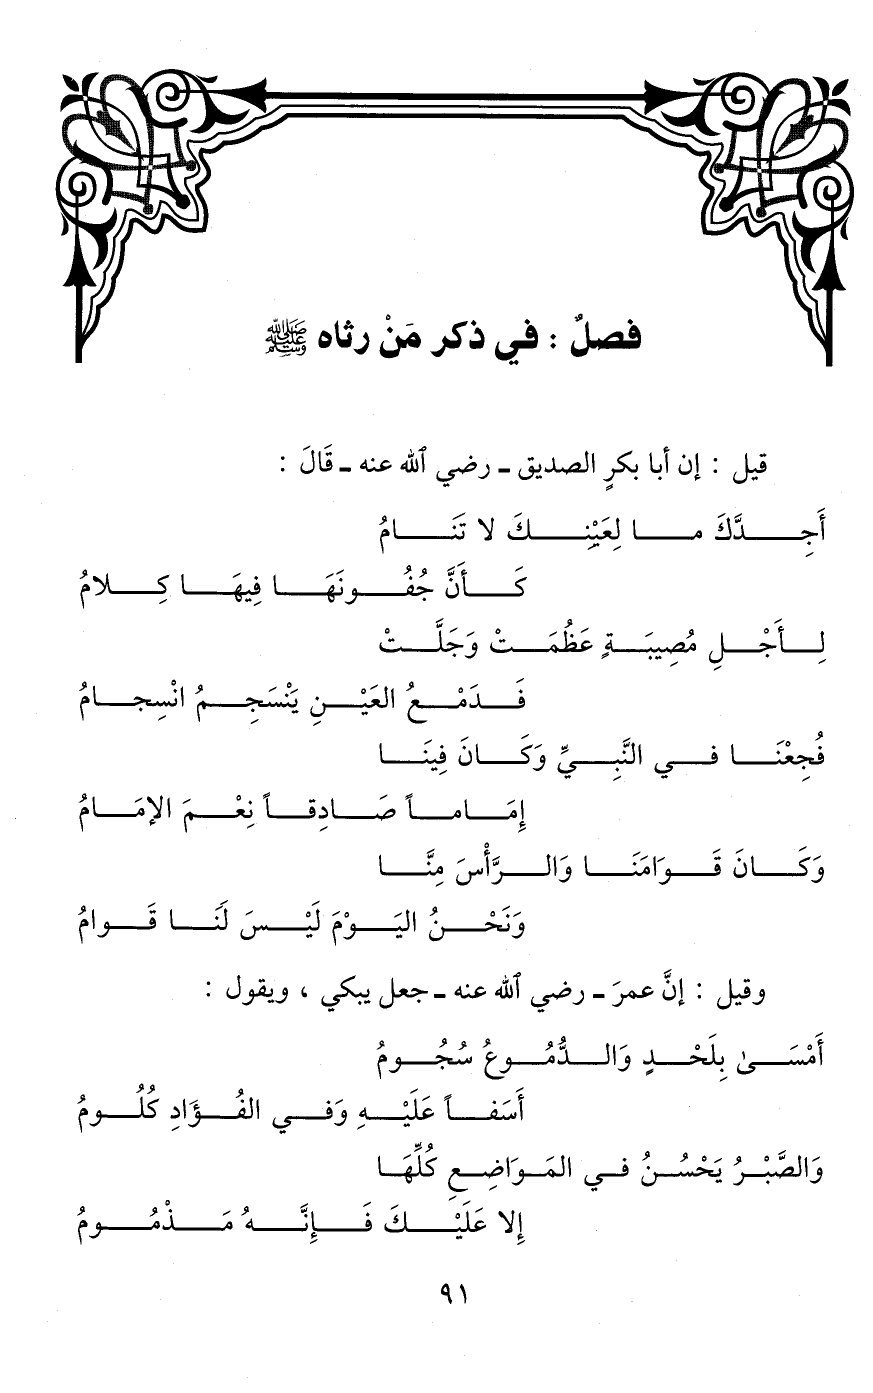 فصلٌ : في ذكر مَنْ رثاه ﷺ
قيل : إن أبا بكرٍ الصديق ـ رضي الله عنه ـ قَالَ :
أَجِدَّكَ ما لِعَيْنِكَ لا تَنَامُ
كَأَنَّ جُفُونَهَا فِيهَا كِلامُ
لِأَجْلِ مُصِيبَةٍ عَظُمَتْ وَجَلَّتْ
فَدَمْعُ العَيْنِ يَنْسَجِمُ انْسِجامُ
فُجِعْنَا في النَّبِيِّ وَكَانَ فِينَا
إِمَاماً صَادِقاً نِعْمَ الإمَامُ
وَكَانَ قَوَامَنَا وَالرَّأْسَ مِنَّا
وَنَحْنُ اليَوْمَ لَيْسَ لَنَا قَوامُ
وقيل : إنَّ عمرَ ـ رضي الله عنه ـ جعل يبكي ، ويقول :
أَمْسَىٰ بِلَحْدٍ وَالدُّمُوعُ سُجُومُ
أَسَفاً عَلَيْهِ وَفي الفُؤَادِ كُلُومُ
وَالصَّبْرُ يَحْسُنُ في المَوَاضِعِ كُلِّهَا
إِلا عَلَيْكَ فَإِنَّهُ مَذْمُومُ
٩١